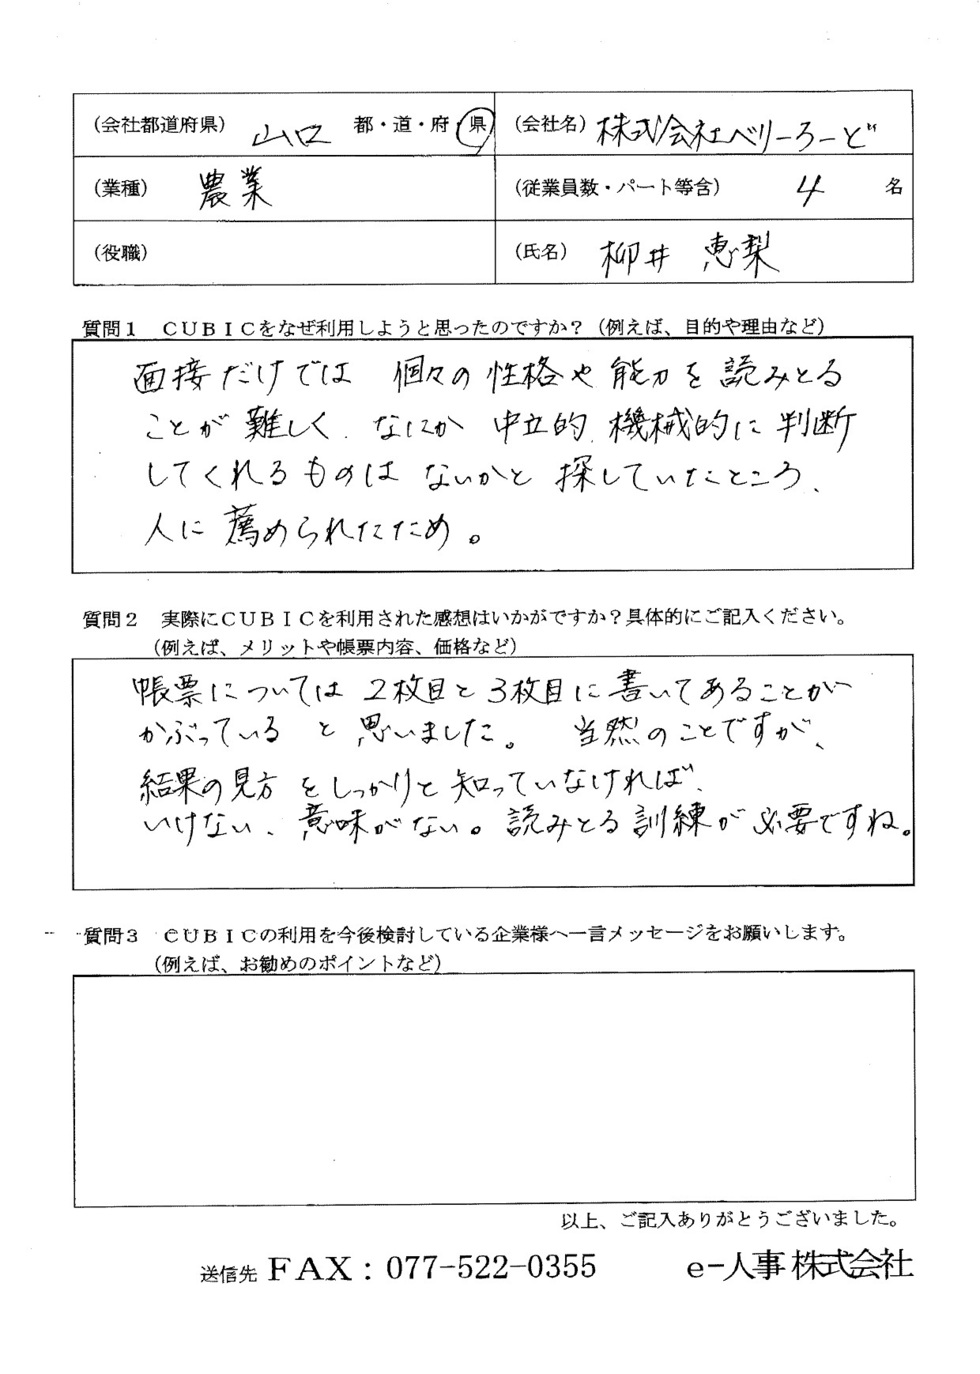 (会社都道府県) 山口 都・道・府・県 (会社名) 株式会社ベリーろーど
(業種) 農業 (従業員数・パート等含) 4 名
(役職) (氏名) 柳井 恵梨
質問1 CUBICをなぜ利用しようと思ったのですか？(例えば、目的や理由など)
面接だけでは 個々の性格や能力を読みとる
ことが難しく、なにか 中立的、機械的に判断
してくれるものは ないかと 探していたところ、
人に薦められたため。
質問2 実際にCUBICを利用された感想はいかがですか？具体的にご記入ください。
(例えば、メリットや帳票内容、価格など)
帳票については 2枚目と3枚目に書いてあることが
かぶっている と 思いました。 当然のことですが、
結果の見方をしっかりと知っていなければ、
いけない、意味がない。読みとる訓練が必要ですね。
質問3 CUBICの利用を今後検討している企業様へ一言メッセージをお願いします。
(例えば、お勧めのポイントなど)
以上、ご記入ありがとうございました。
送信先 FAX：077-522-0355 e-人事株式会社